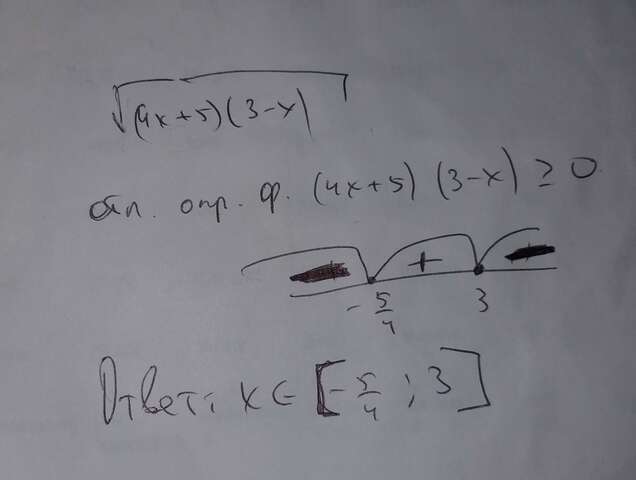 √(4x+5)(3-x)
обл. опр. ф. (4x+5) (3-x) ≥ 0
- + -
-5/4 3
Ответ: x ∈ [-5/4 ; 3]